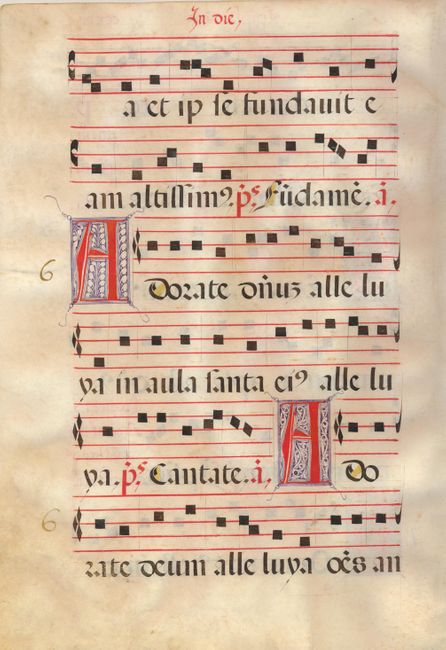 In die,
a et ip se fundauit e
am altissimꝰ. p̄s. Fūdamē. ā.
6
Adorate dn̄uꝫ alle lu
ya in aula santa eiꝰ alle lu
ya. p̄s. Cantate. ā. Ado
6
rate deum alle luya oēs an